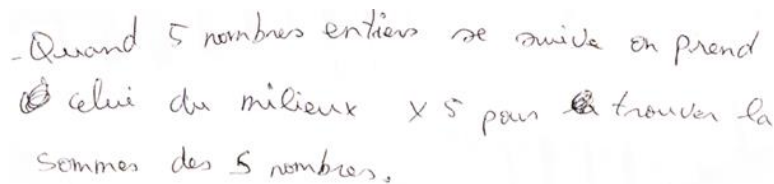 - Quand 5 nombres entiers se suive on prend
celui du milieux x 5 pour trouver la
sommes des 5 nombres.